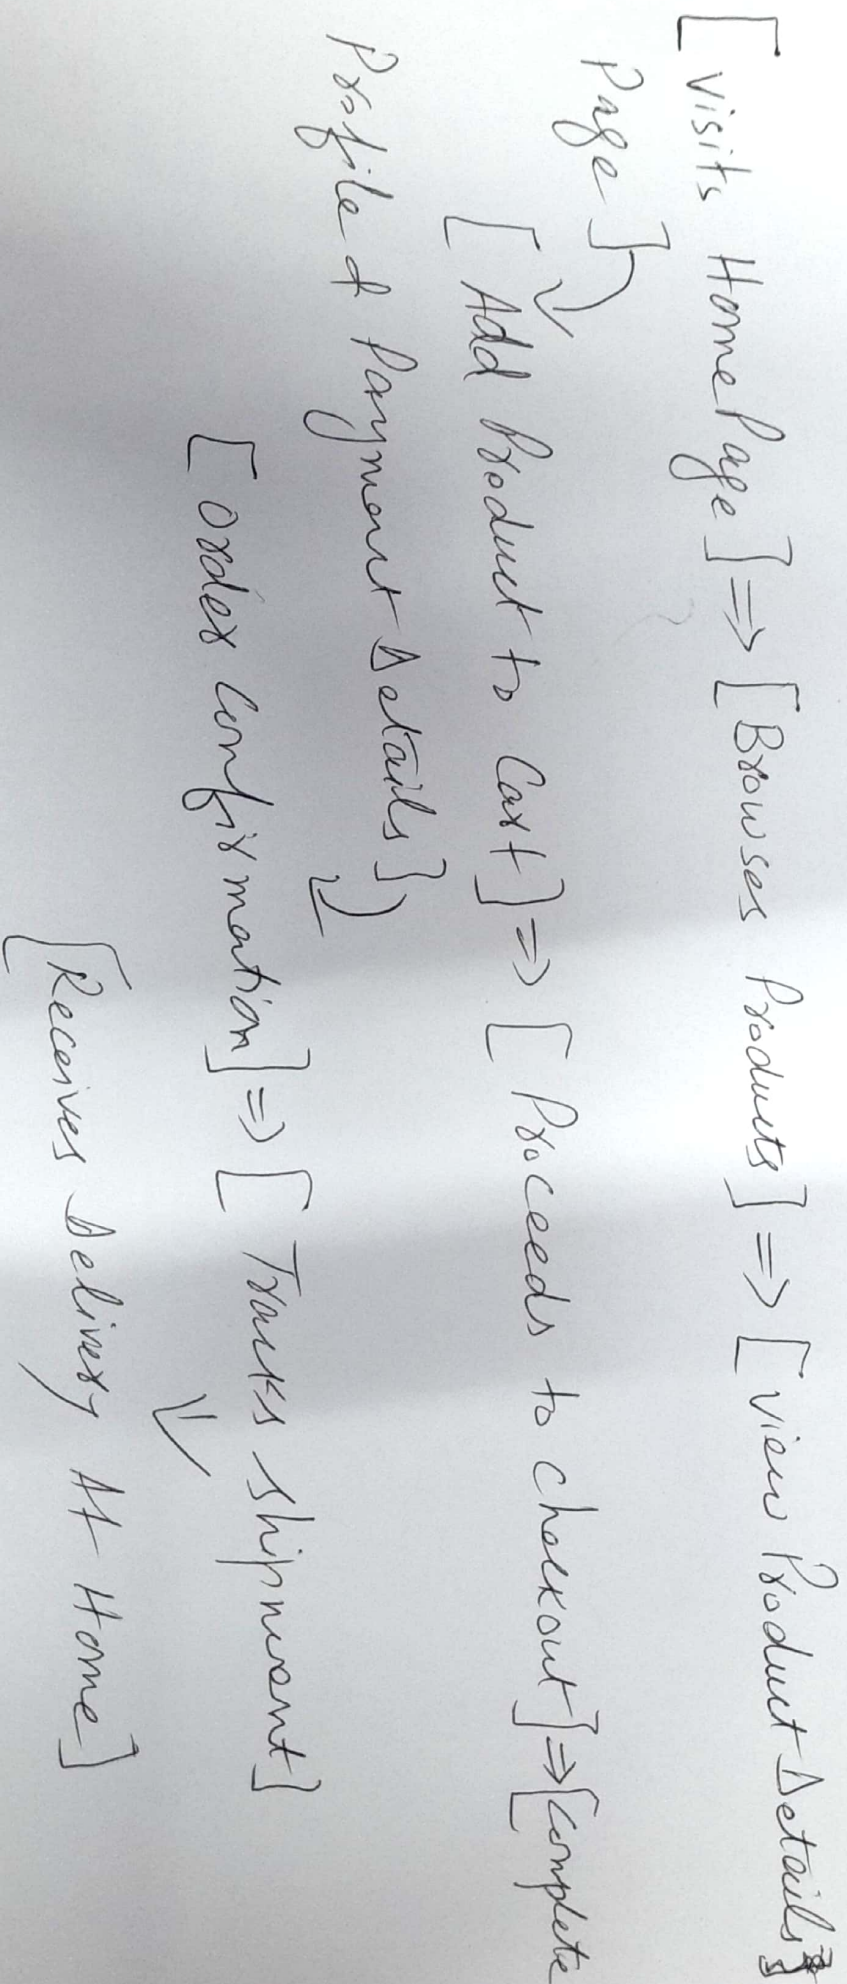 [visits HomePage] => [Browses Products] => [view Product Details
Page]
[Add Product to Cart] => [Proceeds to checkout] => [Complete
Profile & Payment Details]
[order confirmation] => [Tracks shipment]
[Receives Delivery At Home]